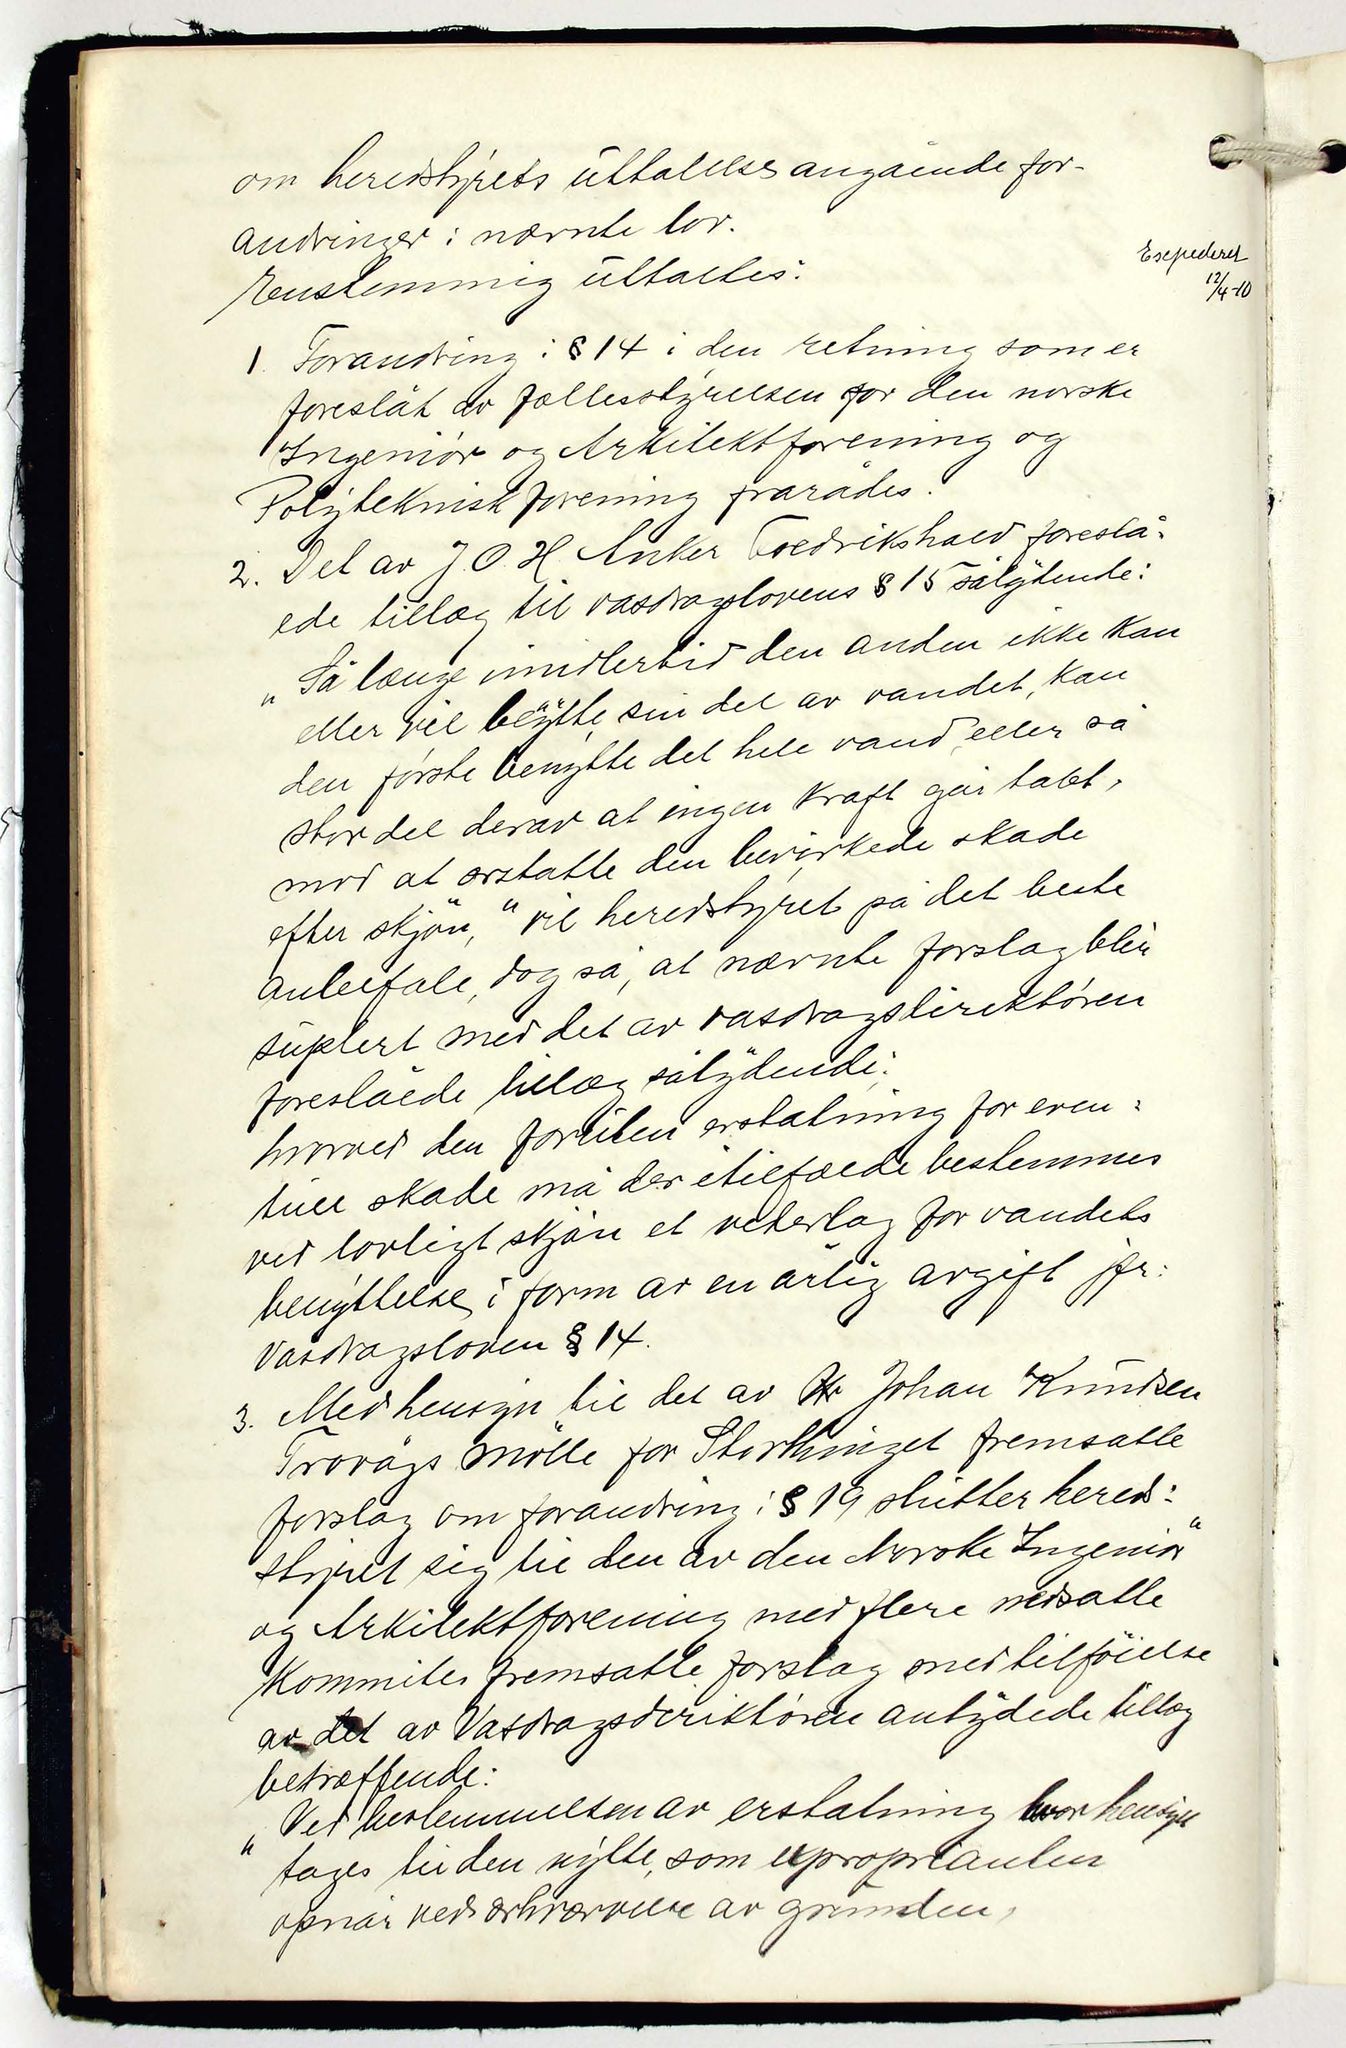 om heredstyrets uttalelse angående for-
andringer i nævnte lov.
Enstemmig uttaltes:
Expederet
12/4-10
1. Forandring i § 14 i den retning som er
foreslåt av fællesstyrelsen for den norske
Ingeniør og Arkitektforening og
Polyteknisk forening frarådes.
2. Det av J. O. H. Anker Fredrikshald foreslå-
ede tillæg til vasdragslovens § 15 sålydende:
"Så længe imidlertid den anden ikke kan
eller vil benytte sin del av vandet, kan
den første benytte det hele vand eller så
stor del derav at ingen kraft går tabt,
mod at erstatte den bevirkede skade
efter skjøn," vil heredstyret på det beste
anbefale, dog så, at nævnte forslag blir
suplert med det av vasdragsdirektøren
foreslåede tillæg sålydende:
hvorved den foruten erstatning for even-
tuel skade må der i tilfælde bestemmes
ved lovligt skjøn et vederlag for vandets
benyttelse i form av en årlig avgift jfr:
Vasdragsloven § 14.
3. Med hensyn til det av Hr Johan Knudsen
Trovågs Mølle for Storthinget fremsatte
forslag om forandring i § 19 slutter hered-
styret sig til den av den Norske Ingeniør"
og Arkitektforening med flere nedsatte
Kommites fremsatte forslag med tilføielse
av det av Vasdragsderiktøren antydede tillæg
betræffende:
"Ved bestemmelsen av erstatning bør hensyn
tages til den nytte, som exproprianten
opnår ved erhvervelse av grunden,